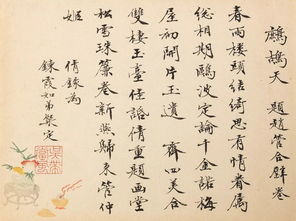 鷓鴣天 題趙管合璧卷
春雨樓頭結綺思有情眷屬
總相期鷗波定論千金諾梅
屋初開片玉遺 齊四美合
雙棲玉臺佳話倩重題画堂
松雪珠簾卷新燕歸來管仲
姬
倩錄爲
錬霞如弟槼定